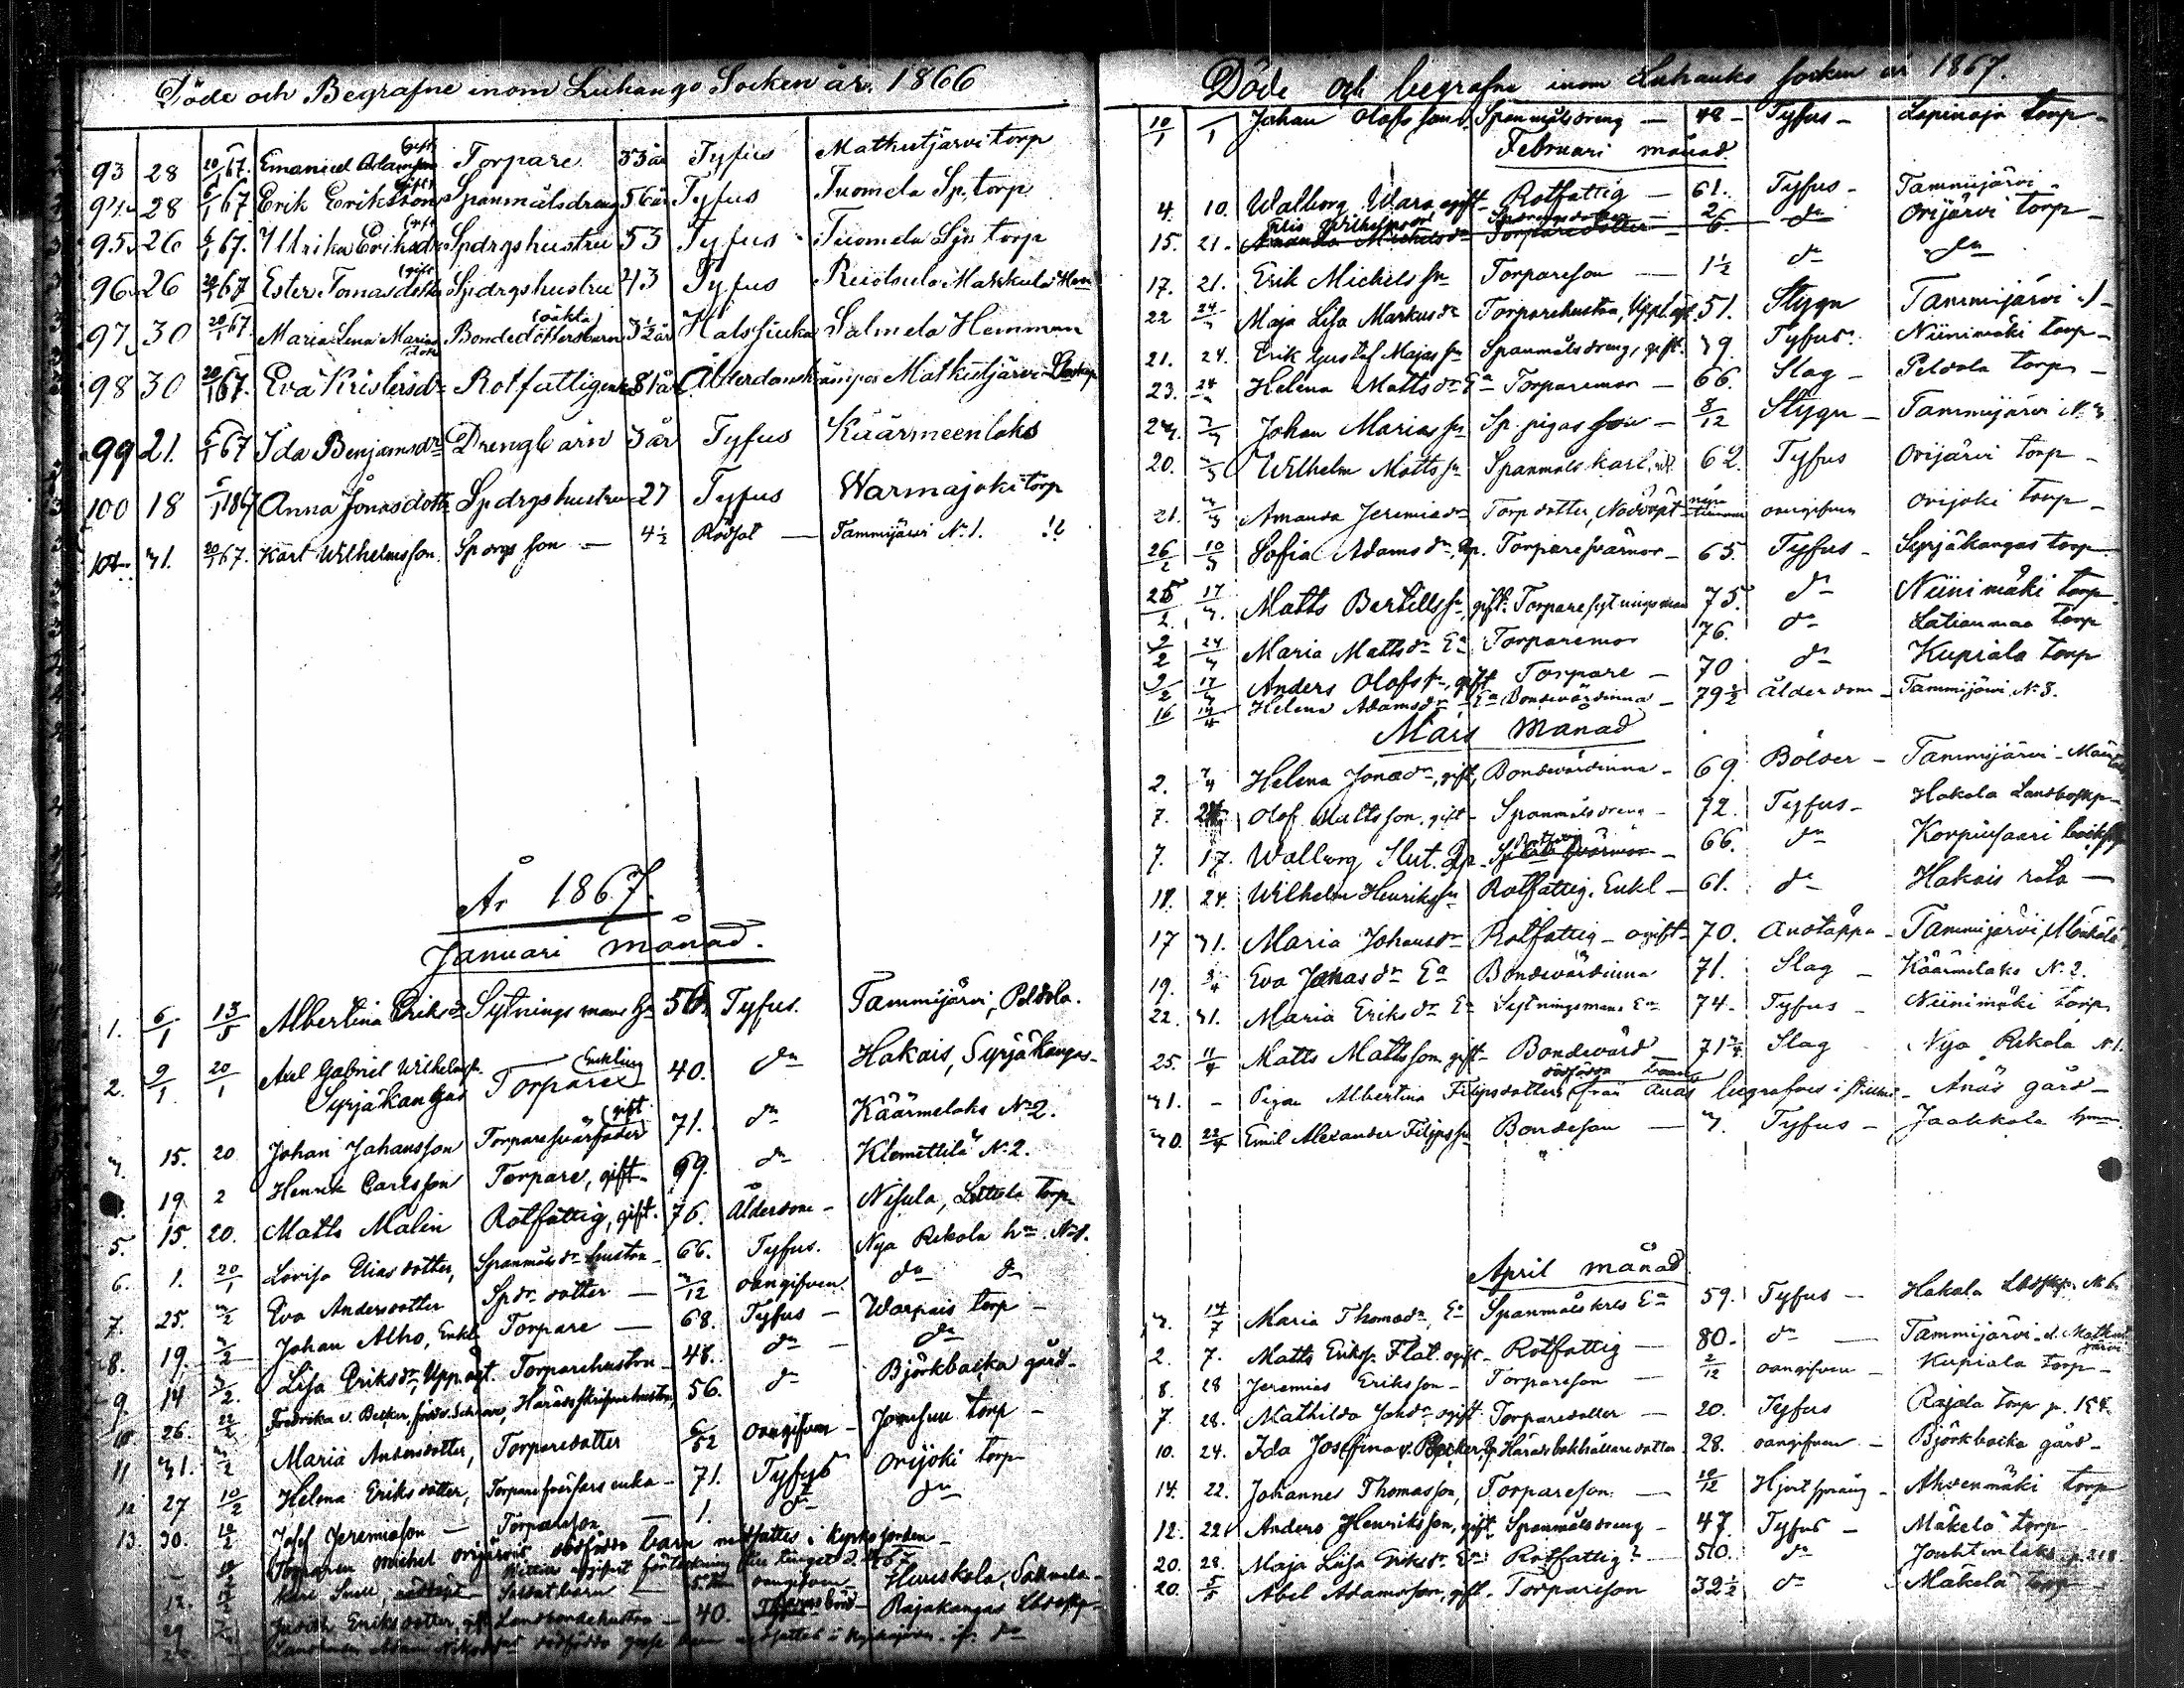 Döde och Begrafne inom Luhango Socken år. 1866
93 28 20/1 67. Emanuel Adamsson (gift) Torpare 33 år Tyfus Matkutjärvi torp
94. 28 6/1 67 Erik Eriksson (gift) Spanmålsdreng 56 år Tyfus Tuomela Sp. torp
95. 26 6/1 67. Ulrika Eriksdr (gift) Spdrgshustru 53 Tyfus Tuomela Spn torp
96 26 20/1 67 Ester Tomasdotter (gift Spdrgshustru 43 Tyfus Makkula Hem
97. 30 20/1 67. Maria Lena Marias dotter Bondedottersbarn (oäkta) 3 1/2 år Halssjuka Salmela Hemman
98 30 20/1 67. Eva Kristersdr Rotfattigenka 81 år Ålderdomskrämpor Matkutjärvi
99 21. 6/1 67 Ida Benjamsdr Drengbarn 3 år Tyfus Käärmeenlaks
100 18 6/1 1867 Anna Jonasdottr Spdrgshustru 27 Tyfus Warmajoki torp
101. 31. 20/1 67. Karl Wilhelmsson Spdrgs son – 4 1/2 Rödsot – Tammijärvi No 1.
År 1867.
Januari månad.
1. 6/1 13/5 Albertina Eriksdr Sytningsmans 56. Tyfus. Tammijärvi, Peldola.
2. 9/1 20/1 Axel Gabriel Wilhelmsson Syrjäkangas Torpare Enkling 40. dn Hakais, Syrjäkangas
3. 15. 20 Johan Johansson Torparesvärfader (gift 71. dn Käärmelaks No 2.
19. 2 Henrik Carlsson Torpare, gift 69. dn Klemettilä No 2.
5. 15. 20. Matts Malin Rotfattig, gift. 76. Ålderdom – Nisula, torp
6. 1. 20/1 Lovisa Eliasdotter, Spanmålsdr hustru 66. Tyfus. Nya Rekola hn No 1.
7. 25. 3/2 Eva Andersdotter Spdr dotter – 3/12 oangifven dn dn
8. 19. 3/2 Johan Alho, Enkl. Torpare – 68. Tyfus – Warpais torp –
9. 14 3/2. Lisa Eriksdr, Torparehustru 48. dn – dn
10 26. 22/2 Fredrika v. Becker, född v. Häradsskrifvarhustru, 56. dn Björkbacka gård
11 31. 3/2 Maria Andersdotter, Torparedotter 6/52 oangifven – torp –
12 27 10/2 Helena Eriksdotter, Torparesvärfars enka – 71. Tyfus Orijoki torp
13. 30. 10/2 Josef Jeremiasson – Torpareson – 1. dn dn
Torparen Michel Orijärvis dödfödda barn nedsattes i kyrkojorden
oangifven Huuskola, Salmela
29 Judith Eriksdotter, gift Landbondehustru – 40. Rajakangas
Döde och begrafne inom Luhanko socken år 1867.
10/1 1 Johan Olofsson Spanmålsdreng – 48 – Tyfus – Lapinoja torp –
Februari månad.
4. 10. Walborg Wara ogift Rotfattig – 61. Tyfus – Tammijärvi –
15. 21. Wilhelmsson 6. dn Orijärvi torp –
17. 21. Erik Michelssn Torpareson – 1 1/2 dn dn
22 24/3 Maja Lisa Markusdr Torparehustru, 51. Stygn Tammijärvi
21. 24. Erik Gustaf Majassn Spanmålsdreng, gift. 39. Tyfus Niinimäki torp –
23. 24 Helena Mattsdr Ea Torparemor – 66. Slag – Peldola torp –
24. 3/3 Johan Mariassn Sp. pigas son – 8/12 Stygn – Tammijärvi No 3
20. 3/3 Wilhelm Mattssn Spanmålskarl, 62. Tyfus Orijärvi torp –
21. 3/3 Amanda Jeremiasdr Torpdotter, Nöddöpt oangifven Orijoki torp –
26/2 10/3 Sofia Adamsdr, Torparesvärmor – 65. Tyfus – Syrjäkangas torp
25/2. 17/3. Matts Bertillssn, gift. Torparesytningsman 75. dn Niinimäki torp
9/2 24/3 Maria Mattsdr Ea Torparemor 76. dn Latianmaa torp
9/2 17/3 Anders Olofssn, gift Torpare – 70 dn Kupiala torp
16 14/4 Helena Adamsdr Ea Bondevärdinna – 79 1/2 ålderdom – Tammijärvi No 3.
Mars månad
2. 3/4 Helena Jonasdr, gift, Bondevärdinna – 69. Bölder – Tammijärvi –
7. 24 Olof Mattsson, gift – Spanmålsdreng – 72. Tyfus – Hakala Landboskp –
7. 17. Walborg Slut. 66. dn Korpiusaari
18. 24. Wilhelm Henrikssn Rotfattig. Enkl – 61. dn Hakais rote –
17 31. Maria Johansdr Rotfattig – ogift – 70. Andtäppa – Tammijärvi, Mäkelä
19. 3/4 Eva Johansdr Ea Bondevärdinna 71. Slag – Käärmelaks No 2.
22. 31. Maria Eriksdr Ea Sytningsmans Ea 74. Tyfus – Niinimäki torp
25. 11/4 Matts Mattsson gift – Bondevärd 71 3/4 Slag Nya Rekola No 1.
31. – Pigan Albertina Filipsdotters dödfödda barn från Anäs begrafves i – Anäs gård –
30. 22/4 Emil Alexander Filipssn Bondeson – 3. Tyfus – Jaakkola hmn
April månad
3. 14/7 Maria Thomasdr, Ea Spanmålskarls Ea 59. Tyfus – Hakala No 6
2. 7. Matts Erikssn Flat. ogift – Rotfattig – 80 – dn – Tammijärvi
8. 28 Jeremias Eriksson – Torpareson – 2/12 oangifven – Kupiala torp –
7. 28. Mathilda Johdr ogift Torparedotter – 20. Tyfus Rajala torp
10. 24. Ida Josefina v. Becker, Häradsbokhållaredotter 28. oangifven – Björkbacka gård –
14. 22. Johannes Thomasson, Torpareson – 10/12 Hjertsprång – Ahvenmäki torp
12. 22 Anders Henriksson, gift, Spanmålsdreng – 47 Tyfus – Mäkelä torp
20. 28. Maja Lisa Eriksdr Ea Rotfattig – 50. dn
20. 5/5 Abel Adamsson, gift. Torpareson 32 1/2 dn Mäkelä torp –